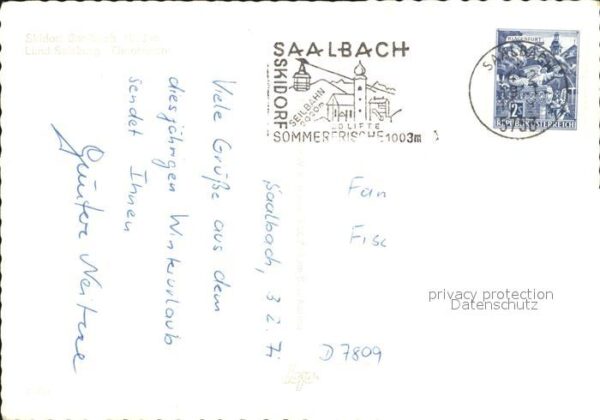 Skidorf Saalbach 1003m
Land Salzburg
SAALBACH
SKIDORF
SEILBAHN
2020m
LIFTE
SOMMERFRISCHE 1003m
SAALBACH
5753
KLAGENFURT
2S
REPUBLIK ÖSTERREICH
Saalbach, 3 2. 71
Viele Grüße aus dem
diesjährigen Winterurlaub
sendet Ihnen
Günter
Fan
Fisc
D 7809
privacy protection
Datenschutz